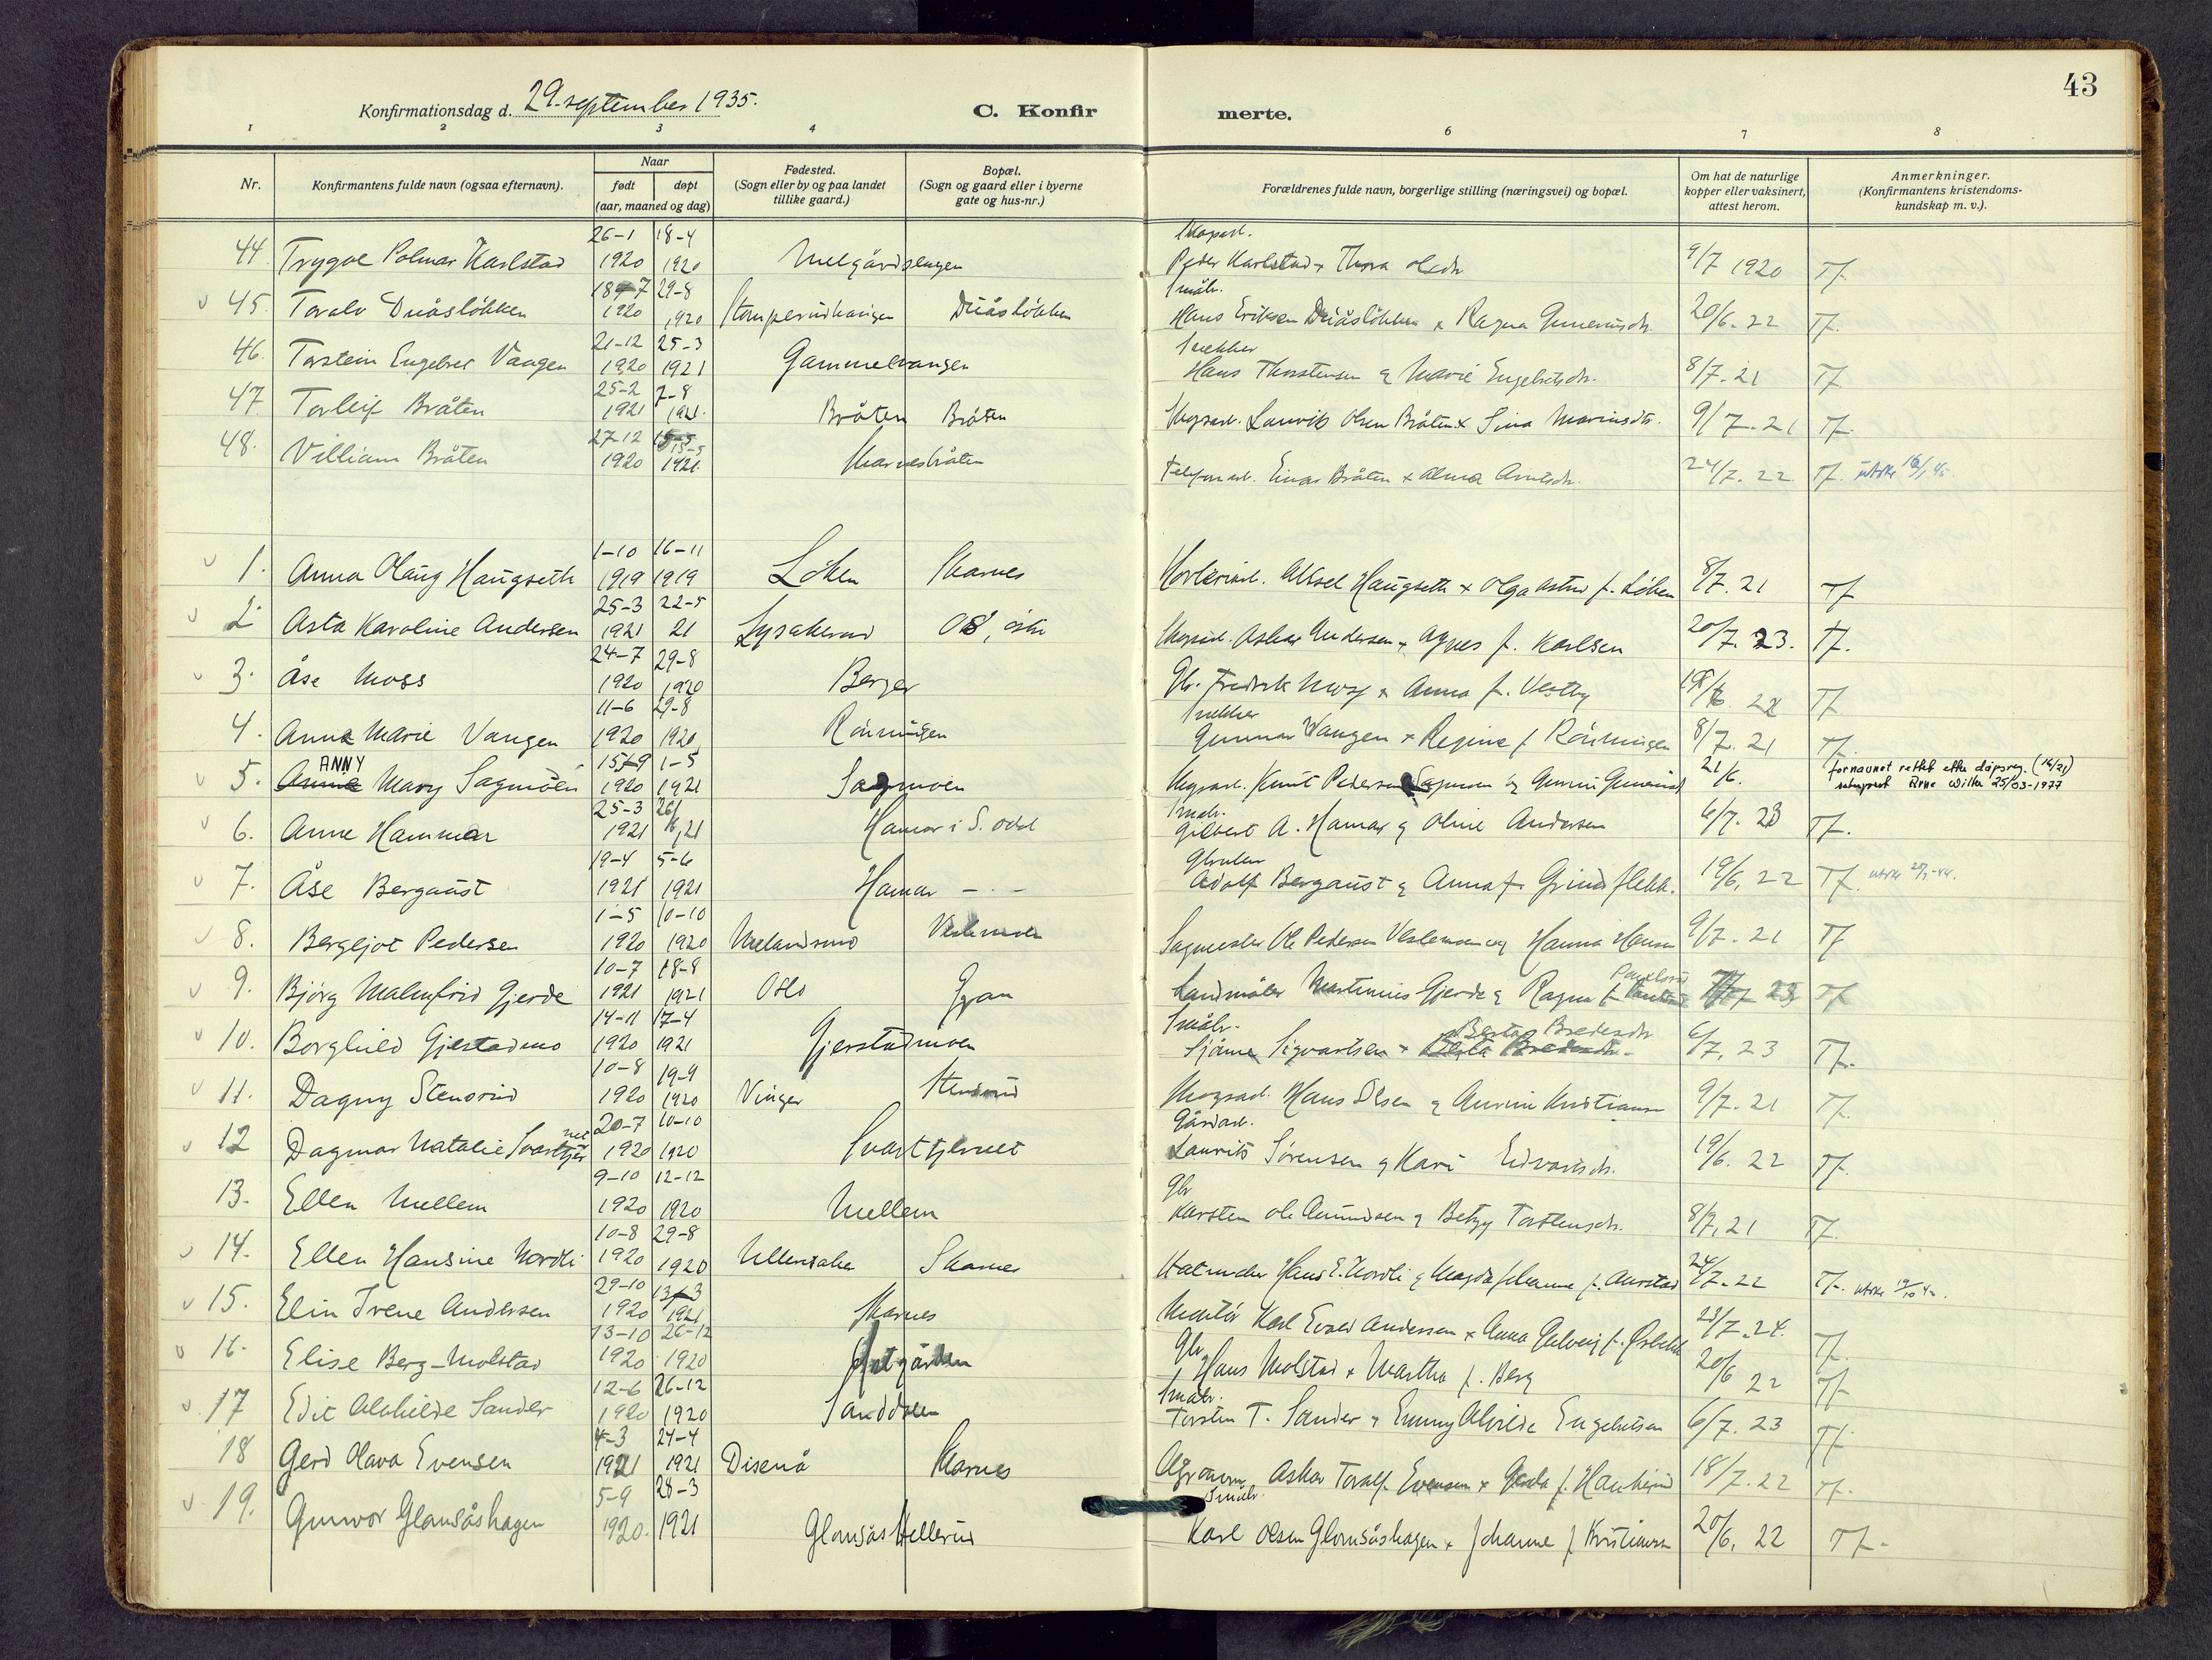 43
Konfirmationsdag d. 29. september 1935.
C. Konfirmerte.
1 2 3 4 6 7 8
Nr. Konfirmantens fulde navn (ogsaa efternavn). Naar født døpt (aar, maaned og dag) Fødested. (Sogn eller by og paa landet tillike gaard.) Bopæl. (Sogn og gaard eller i byerne gate og hus-nr.) Forældrenes fulde navn, borgerlige stilling (næringsvei) og bopæl. Om hat de naturlige kopper eller vaksinert, attest herom. Anmerkninger. (Konfirmantens kristendoms-kundskap m. v.).
44 Trygve Polmar Karlstad 26-1 1920 18-4 1920 Peder Karlstad x Thora Olsdtr 9/7 1920 Tf.
45. Toralv Duåsløkken 1920 29-8 1920 Duåsløkken Småbr. Hans Eriksen Duåsløkken x Ragna Guneriusdtr. 20/6. 22 Tf.
46. Torstein Engebret Vangen 21-12 1920 25-3 1921 Gammelvangen Snekker Hans Thorstensen & Marie Engebretsdtr. 8/7. 21 Tf
47 Torleif Bråten 25-2 1921 7-8 1921. Bråten Bråten Skogsarb. Lauritz Olsen Bråten x Sina Mariusdtr. 9/7. 21 Tf.
48. Villiam Bråten 27-12 1920 15-5 1921. Skarnesbråten Einar Bråten x Alma 24/7. 22 Tf.
1. Anna Olaug Haugseth 1-10 1919 16-11 1919 Løken Skarnes Aksel Haugseth x Olga Astrid f. Løken 8/7. 21 Tf
2. Asta Karoline Andersen 25-3 1921 22-5 21 Lysakerud Os, østre Skogsarb. Asker Andersen x Agnes f. Karlsen 20/7. 23. Tf.
3. Åse Moss 24-7 1920 29-8 1920 Berger Gbr. Fredrik Moss x Anna f. Vestby Tf
4. Anna Marie Vangen 11-6 1920 29-8 1920 Rønningen Snekker Gunnar Vangen x Regine f Rönningen 8/7. 21 Tf.
5. ANNY Mary Sagmoen 1920 1-5 1921 Sagmoen Skogsarb. Knut Pedersen Sagmoen & Gunni 21/6. fornavnet rettet etter dåpsreg. (16/21) sokneprest Arne Wilter 25/03-1977
6. Anne Hammar 25-3 1921 26/6, 21 Hamar i S. odal Småbr. Gilbert A. Hamar & Oline Andersen 6/7. 23 Tf.
7. Åse Bergaust 19-4 1921 5-6 1921 Hamar - . - Adolf Bergaust & Anna f. Grindflekk. 19/6, 22 Tf.
8. Bergljot Pedersen 1-5 1920 10-10 1920 Sagmester Ole Pedersen og Hanna Hansen 9/7. 21 Tf
9. Bjørg Malmfrid Gjerde 10-7 1921 18-8 1921 Oslo Landmåler Martinius Gjerde & Ragna f. 23 Tf
10. Borghild Gjerstadmo 14-11 1920 17-4 1921 Gjerstadmoen Småbr. Sigvartsen x Berta Bredesdtr 6/7, 23 Tf.
11. Dagny Stensrud 10-8 1920 19-9 1920 Vinger Stensrud Skogsarb. Hans Olsen & 9/7. 21 Tf.
12 Dagmar Natalie Svarttjernet 20-7 1920 10-10 1920 Svarttjernet Gårdarb. Laurits Sørensen & Kari Edvardsdtr. 19/6. 22 Tf.
13. Ellen Mellem 9-10 1920 12-12 1920 Mellem Gbr Karsten Ole Amundsen & Betzy Torstensdtr. 8/7, 21 Tf.
14. Ellen Hansine Nordli 10-8 1920 29-8 1920 Ullensaker Skarnes Hans E. Nordli & Magda Johanne f. Aurstad 24/7. 22 Tf.
15. Elin Irene Andersen 29-10 1920 13-3 1921 Skarnes Montör Karl Evald Andersen x Anna Solveig f. 23/7. 24. Tf.
16. Elise Berg-Molstad 13-10 1920 26-12 1920 Gbr Hans Molstad x Martha f. Berg 20/6 22 Tf
17 Edit Alvhilde Sander 12-6 1920 26-12 1920 Småbr. Torsten T. Sander & Emmy Alvilde Engebretsen 6/7. 23 Tf
18 Gerd Olava Evensen 4-3 1921 24-4 1921 Disenå Skarnes Agronom Asker Toralf Evensen x Gerda f. 18/7. 22 Tf.
19. Gunvor Glomsåshagen 5-9 1920. 28-3 1921 Glomsås Hellerud Småbr. Karl Olsen Glomsåshagen x Johanne f Kristiansen 20/6, 22 Tf.